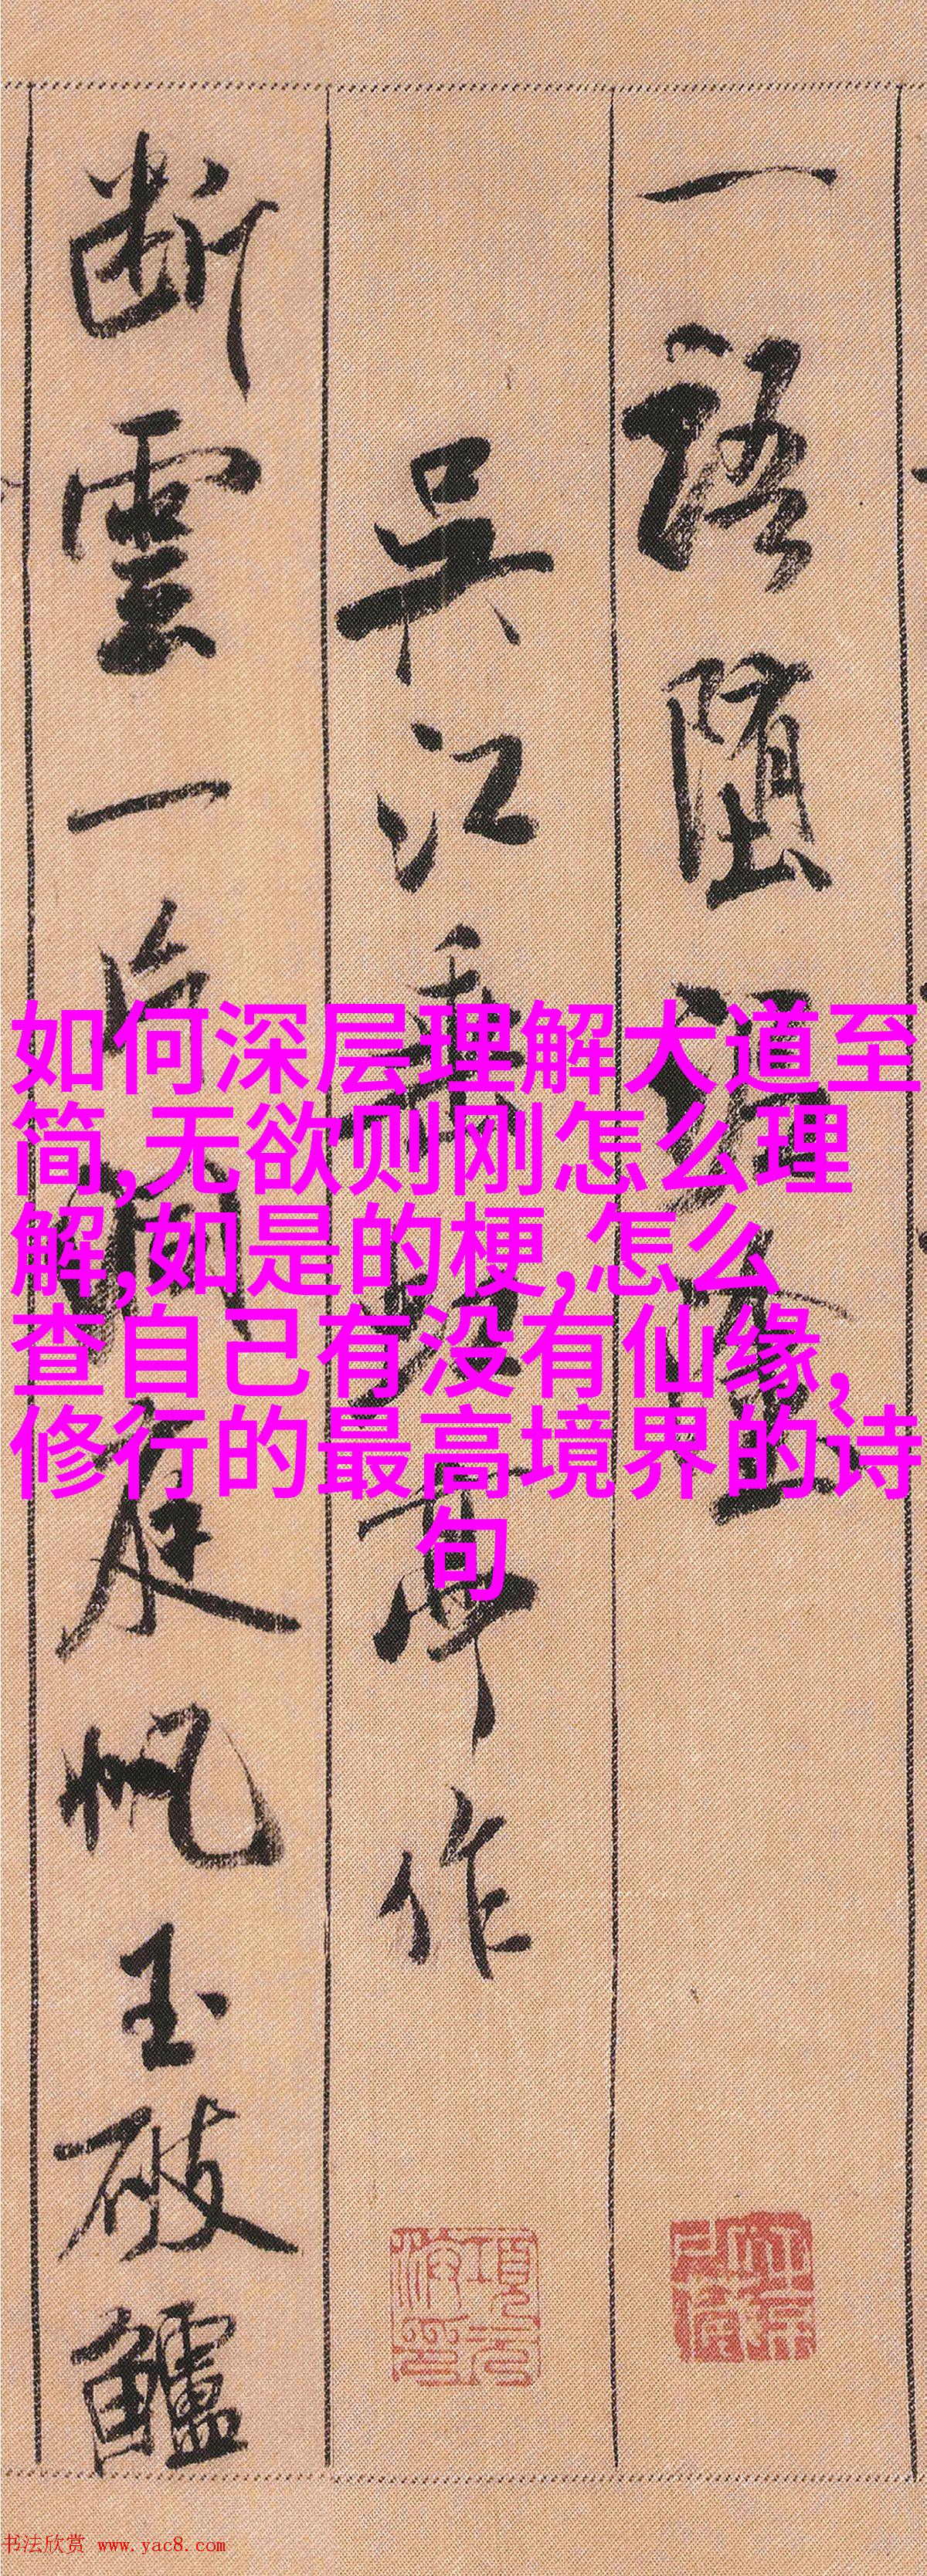 一語墮泥塗
吳江垂虹亭作
斷雲一片洞庭帆玉破鱸
如何深层理解大道至
简,无欲则刚怎么理
解,如是的梗,怎么
查自己有没有仙缘,
修行的最高境界的诗
句
书法欣赏 www.yac8.com